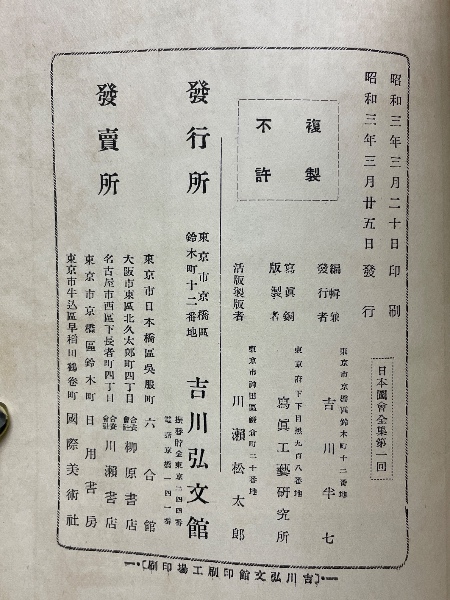 昭和三年三月二十日印刷
昭和三年三月廿五日發行
日本圖會全集第一回
複製
不許
編輯兼
發行者
東京市京橋區鈴木町十二番地
吉川半七
寫眞銅
版製者
東京府下下目黑九百八番地
寫眞工藝研究所
活版製版者
東京市神田區鎌倉町二十番地
川瀨松太郎
發行所
東京市京橋區
鈴木町十二番地
吉川弘文館
振替貯金東京二四四番
電話京橋一四一番
發賣所
東京市日本橋區吳服町
六合館
大阪市東區北久太郎町四丁目
合資會社
柳原書店
名古屋市西區下長者町四丁目
合資會社
川瀨書店
東京市京橋區鈴木町
日用書房
東京市牛込區早稻田鶴卷町
國際美術社
吉川弘文館印刷工場印刷